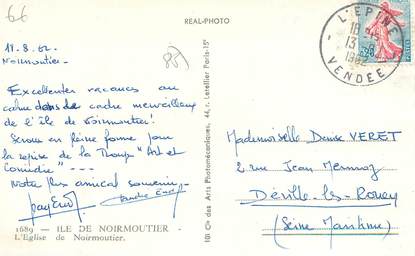 66
REAL-PHOTO
L'EPINE
18 H
13-8
1962
VENDEE
0,20
18.8.62.
Noirmoutier
Excellentes vacances au
calme dans le cadre merveilleux
de l'île de Noirmoutier!
Serons en pleine forme pour
la reprise de la Troupe "Art et
Comédie" ---
Notre plus amical souvenir
1689 - ILE DE NOIRMOUTIER -
L'Eglise de Noirmoutier.
Cie des Arts Photomécaniques, 44, r. Letellier Paris-15e
Mademoiselle Denise VERET
2 rue Jean Mermoz
Déville-les-Rouen
(Seine Maritime)